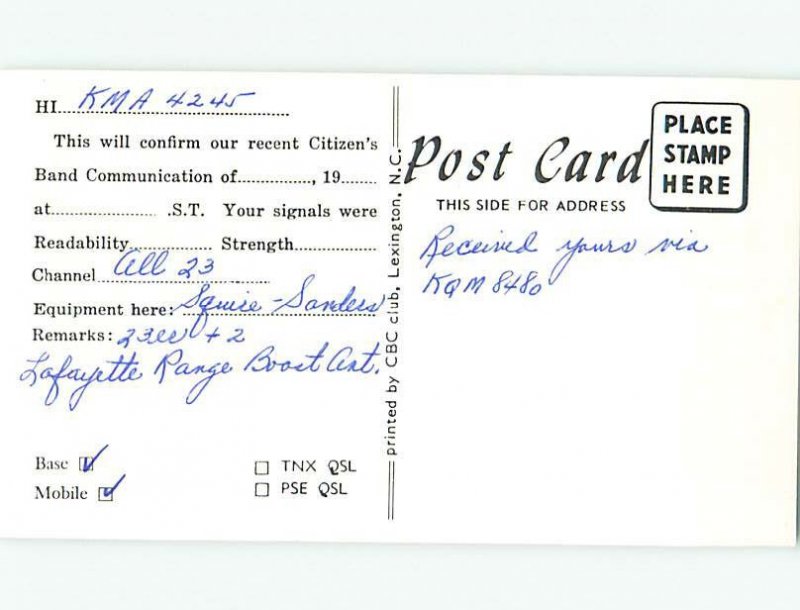 HI KMA 4245
This will confirm our recent Citizen's
Band Communication of..............., 19.......
at..................... .S.T. Your signals were
Readability................ Strength................
Channel All 23
Equipment here: Squire-Sanders
Remarks: 23er + 2
Lafayette Range Boost Ant.
Base
Mobile
TNX QSL
PSE QSL
printed by CBC club, Lexington, N.C.
Post Card
THIS SIDE FOR ADDRESS
PLACE
STAMP
HERE
Received yours via
KQM 8480